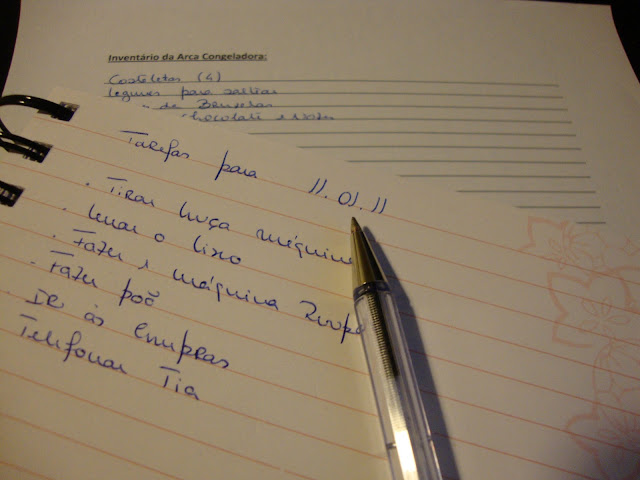 Inventário da Arca Congeladora:
Costeletas (4)
legumes para saltear
" de Bruxelas
chocolate e nozes
Tarefas para 11.01.11
. Tirar louça máquina
. levar o lixo
. Fazer 1 máquina Roupa
. Fazer pão
. IR às compras
Telefonar Tia